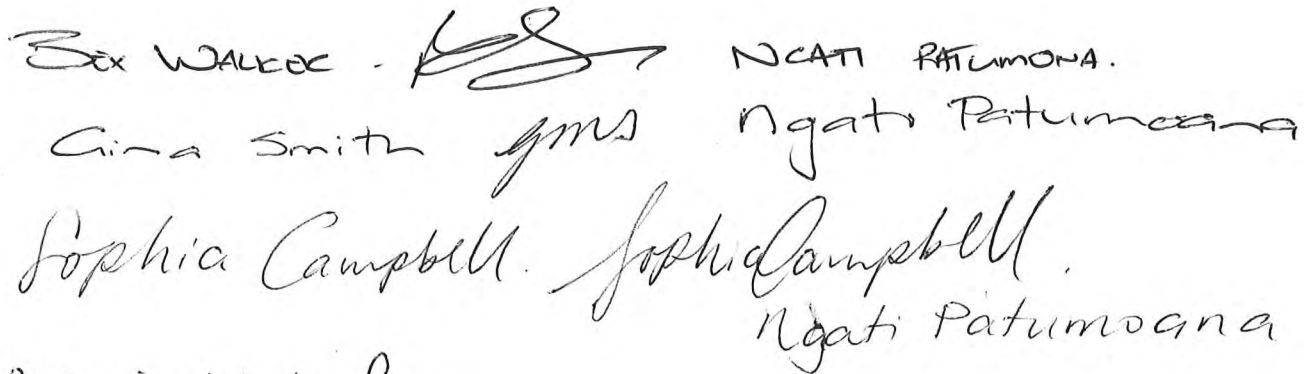 Bex WALKER. NGATI PATUMONA.
Gina Smith gms Ngati Patumoana
Sophia Campbell. Sophia Campbell.
Ngati Patumoana